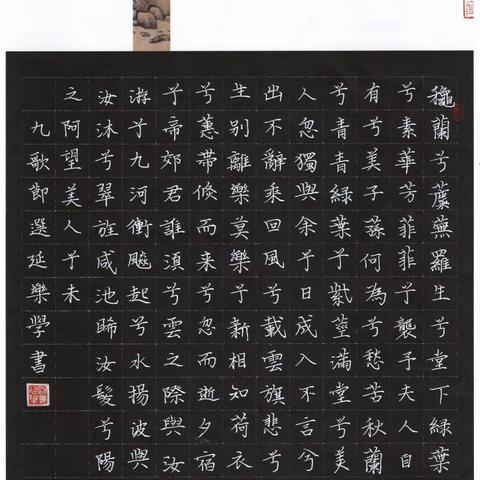 龝蘭兮蘪蕪羅生兮堂下綠葉
兮素華芳菲菲兮襲予夫人自
有兮美子蓀何為兮愁苦秋蘭
兮青青綠葉兮紫莖滿堂兮美
人忽獨與余兮目成入不言兮
出不辭乘回風兮載雲旗悲兮
生別離樂莫樂兮新相知荷衣
兮蕙帶倏而來兮忽而逝夕宿
兮帝郊君誰須兮雲之際與汝
游兮九河衝飈起兮水揚波與
汝沐兮翠旌咸池晞汝髮兮陽
之阿望美人兮未
九歌節選延樂學書